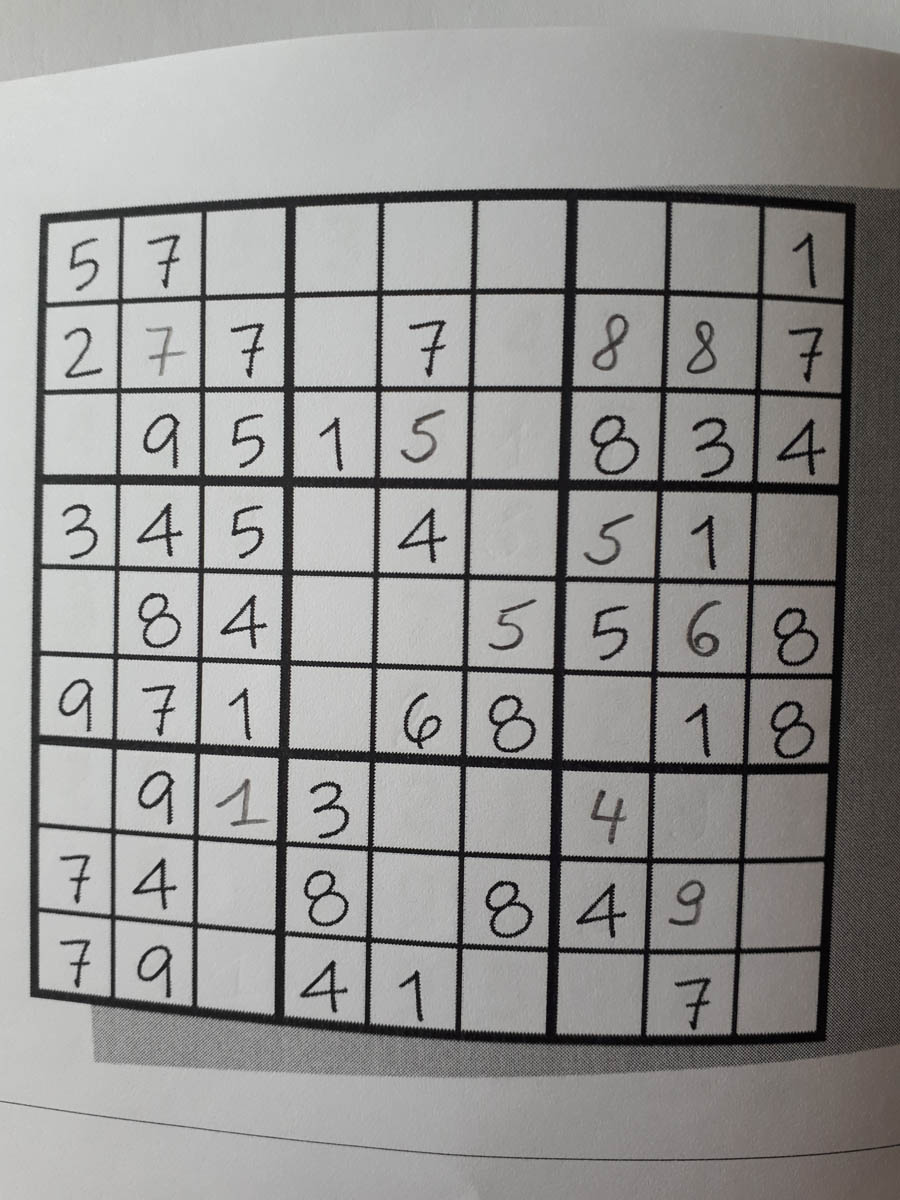 5 7 1
2 7 7 7 8 8 7
9 5 1 5 8 3 4
3 4 5 4 5 1
8 4 5 5 6 8
9 7 1 6 8 1 8
9 1 3 4
7 4 8 8 4 9
7 9 4 1 7